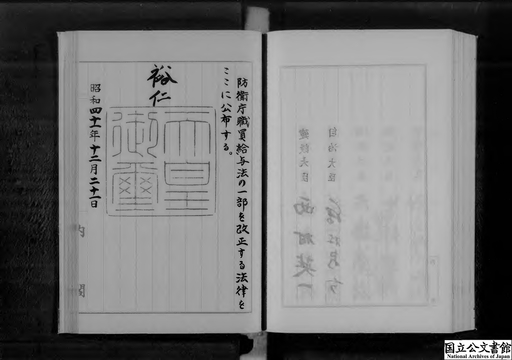 防衛庁職員給与法の一部を改正する法律を
ここに公布する。
裕仁
天皇
御璽
昭和四十一年十二月二十一日
内閣
自治大臣
建設大臣
国立公文書館
National Archives of Japan